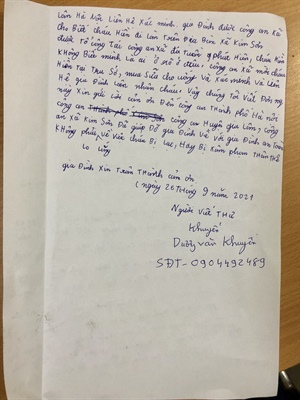 Lâm Hà Nội Liên Hệ Xác minh. gia Đình được công an xã
cho Biết cháu Hiền đi Lần Trên Địa Bàn xã Kim Sơn
được Tổ công Tác công an xã đi tuần phát Hiện, cháu Hiền
không Biết mình Là ai ở đâu, công an xã mời cháu
Hiền Tại Trụ Sở, mua Sữa cho uống và Xác minh và Liên
Hệ gia Đình Lên nhận cháu. Vậy chúng Tôi Viết Đơn
này Xin gửi Lời cảm ơn Đến công an Thành phố Hà nội
công an công an Huyện gia Lâm, công
an xã Kim Sơn Đã giúp Đỡ gia Đình Về với gia Đình an toàn
không phải về việc cháu Bị Lạc, Hay Bị Xâm phạm Thân Thể
Lo Lắng
gia Đình Xin Trân Thành cảm ơn
(ngày 20 Tháng 9 năm 2021
Người Viết Thư
Khuyến
Dương văn Khuyến
SĐT - 0904492489